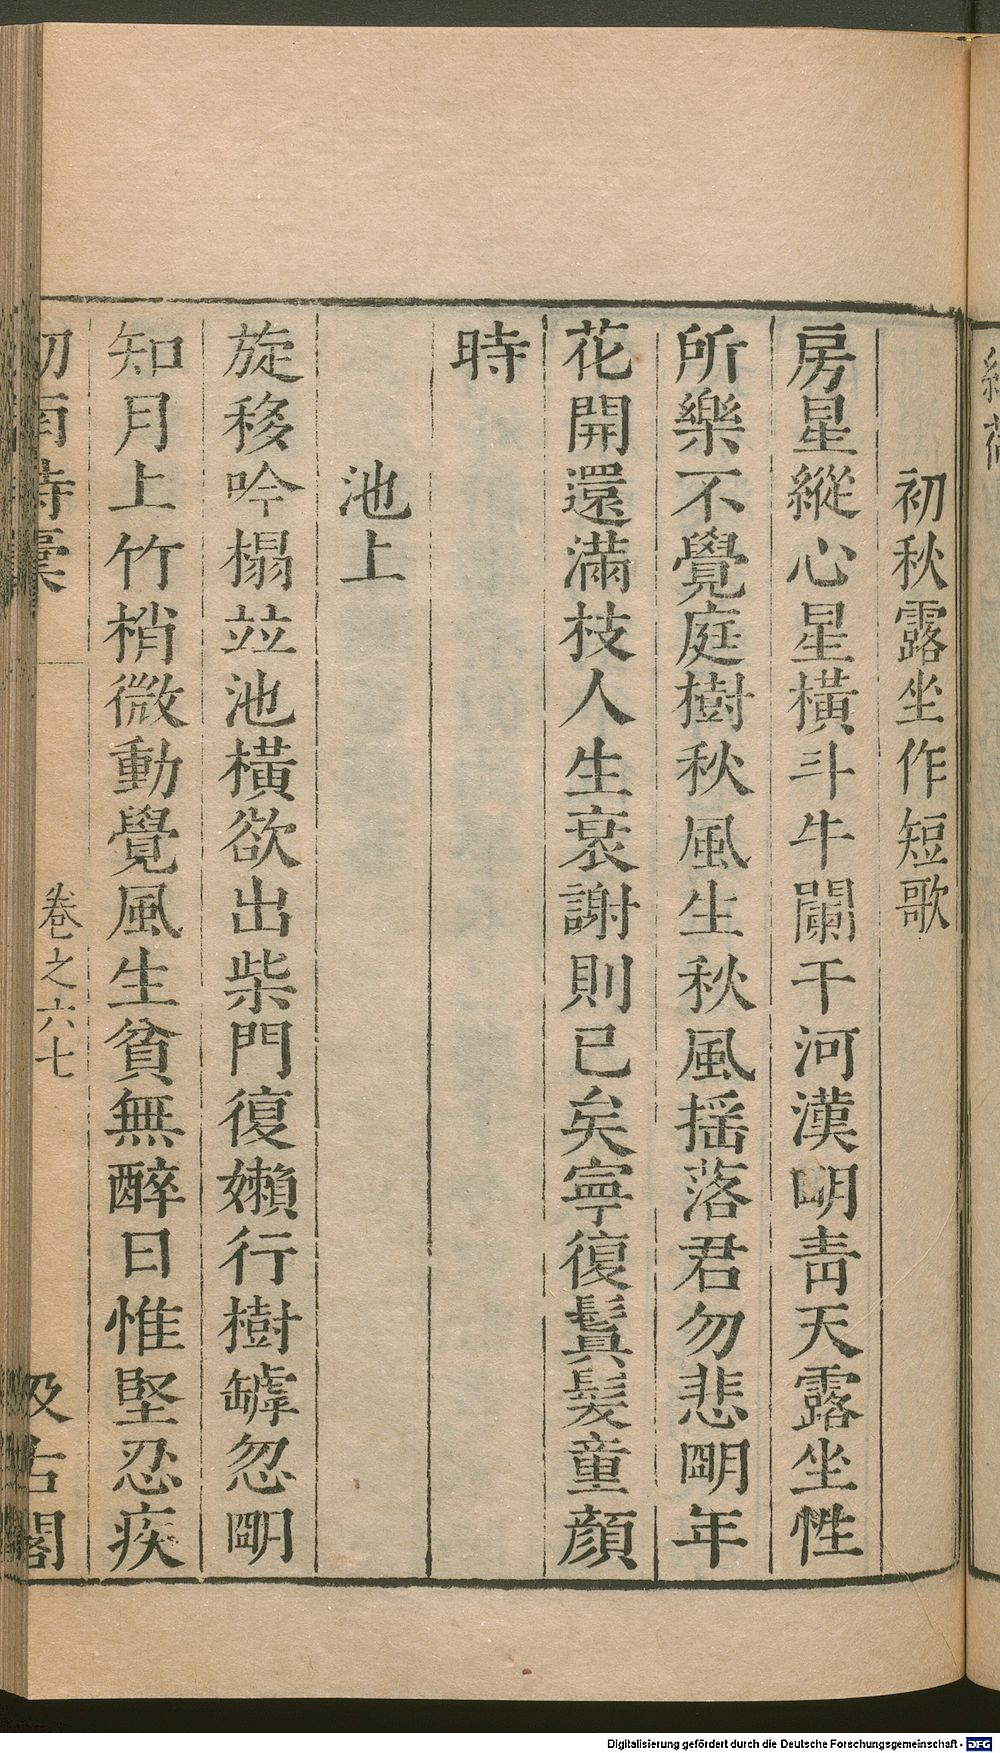 初秋露坐作短歌
房星縱心星橫斗牛闌干河漢明青天露坐性
所樂不覺庭樹秋風生秋風揺落君勿悲明年
花開還滿枝人生衰謝則已矣寧復鬒髮童顔
時
池上
旋移吟榻竝池橫欲出柴門復嬾行樹罅忽明
知月上竹梢微動覺風生貧無醉日惟堅忍疾
劒南詩稾
卷之六七
汲古閣
Digitalisierung gefördert durch die Deutsche Forschungsgemeinschaft - DFG